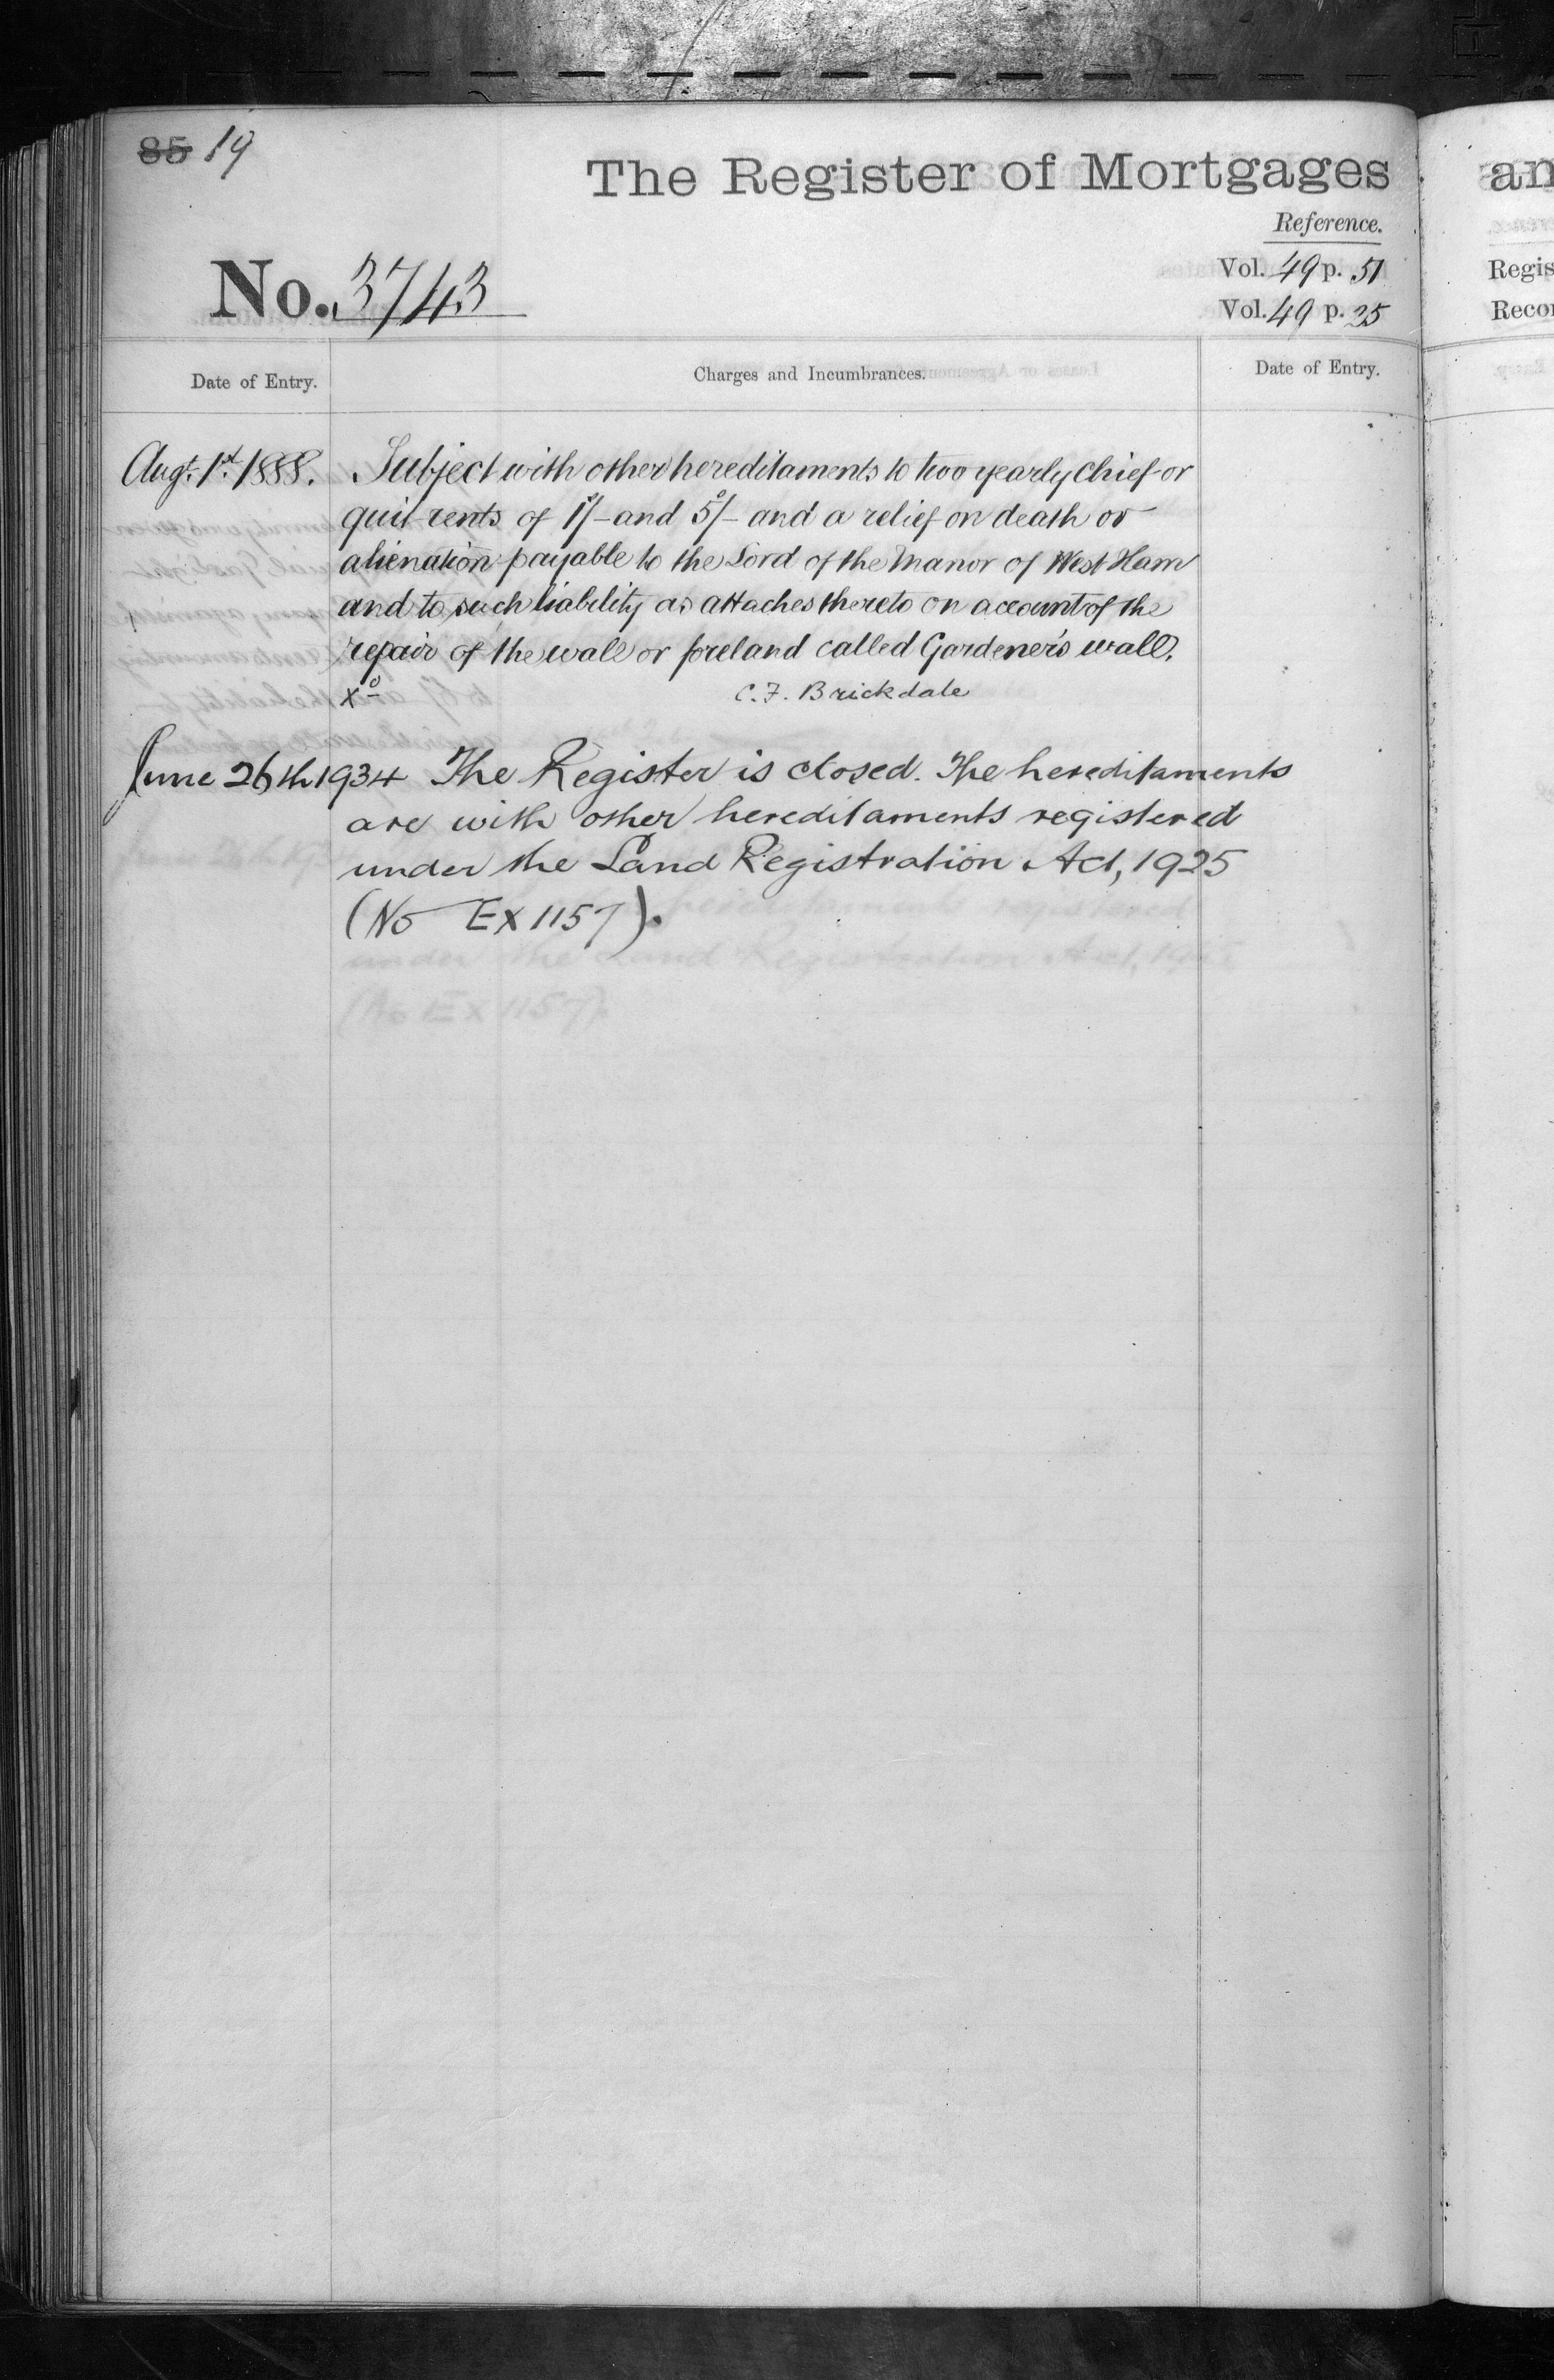 85 19
The Register of Mortgages
Reference.
No. 3743
Vol. 49 p. 51
Vol. 49 p. 25
Date of Entry.
Charges and Incumbrances.
Date of Entry.
Augt. 1st. 1888.
Subject with other hereditaments to two yearly chief or
quit rents of 1s/- and 5s/- and a relief on death or
alienation payable to the Lord of the Manor of West Ham
and to such liability as attaches thereto on account of the
repair of the wall or foreland called Gardener's wall.
C.F. Brickdale
June 26th 1934 The Register is closed. The hereditaments
are with other hereditaments registered
under the Land Registration Act, 1925
(No EX 1157).
an
Regis
Recor